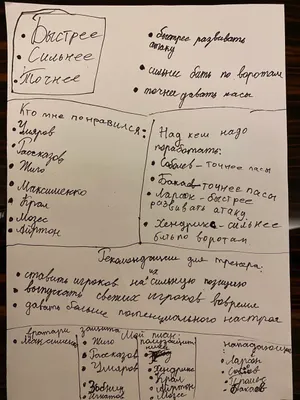 • Быстрее
• Сильнее
• Точнее
• быстрее развивать
атаку
• сильнее бить по воротам
• точнее давать пасы
Кто мне понравился:
• Умяров
• Рассказов
• Жиго
• Максименко
• Крал
• Мозес
• Айртон
Над кем надо
поработать:
• Соболев - точнее пасы
• Бакаев - точнее пасы
• Ларсон - быстрее
развивать атаку
• Хендрикс - сильнее
бить по воротам
Рекомендации для тренера:
• ставить игроков на их сильную позицию
• выпускать свежих игроков вовремя
• давать больше потенциального настроя
Мой план:
вратари
• Максименко
защита
• Жиго
• Рассказов
• Умаров
полузащитники
• Хендрикс
• Крал
• Айртон
• Мозес
нападающие
• Ларсон
• Соболев
• Бакаев